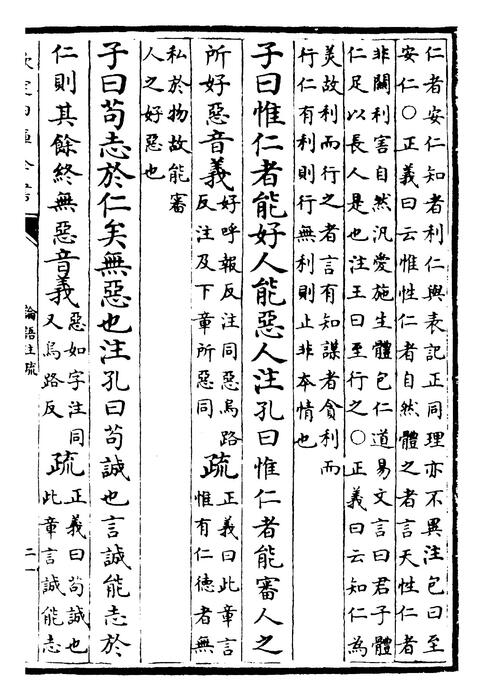 仁者安仁知者利仁與表記正同理亦不異注包曰至
安仁○正義曰云惟性仁者自然體之者言天性仁者
非關利害自然汎愛施生體包仁道易文言曰君子體
仁足以長人是也注王曰至行之○正義曰云知仁為
美故利而行之者言有知謀者貪利而
行仁有利則行無利則止非本情也
子曰惟仁者能好人能惡人注孔曰惟仁者能審人之
所好惡音義好呼報反注同惡烏路
反注及下章所惡同疏正義曰此章言
惟有仁德者無
私於物故能審
人之好惡也
子曰苟志於仁矣無惡也注孔曰苟誠也言誠能志於
仁則其餘終無惡音義惡如字注同
又烏路反疏正義曰苟誠也
此章言誠能志
論語注疏